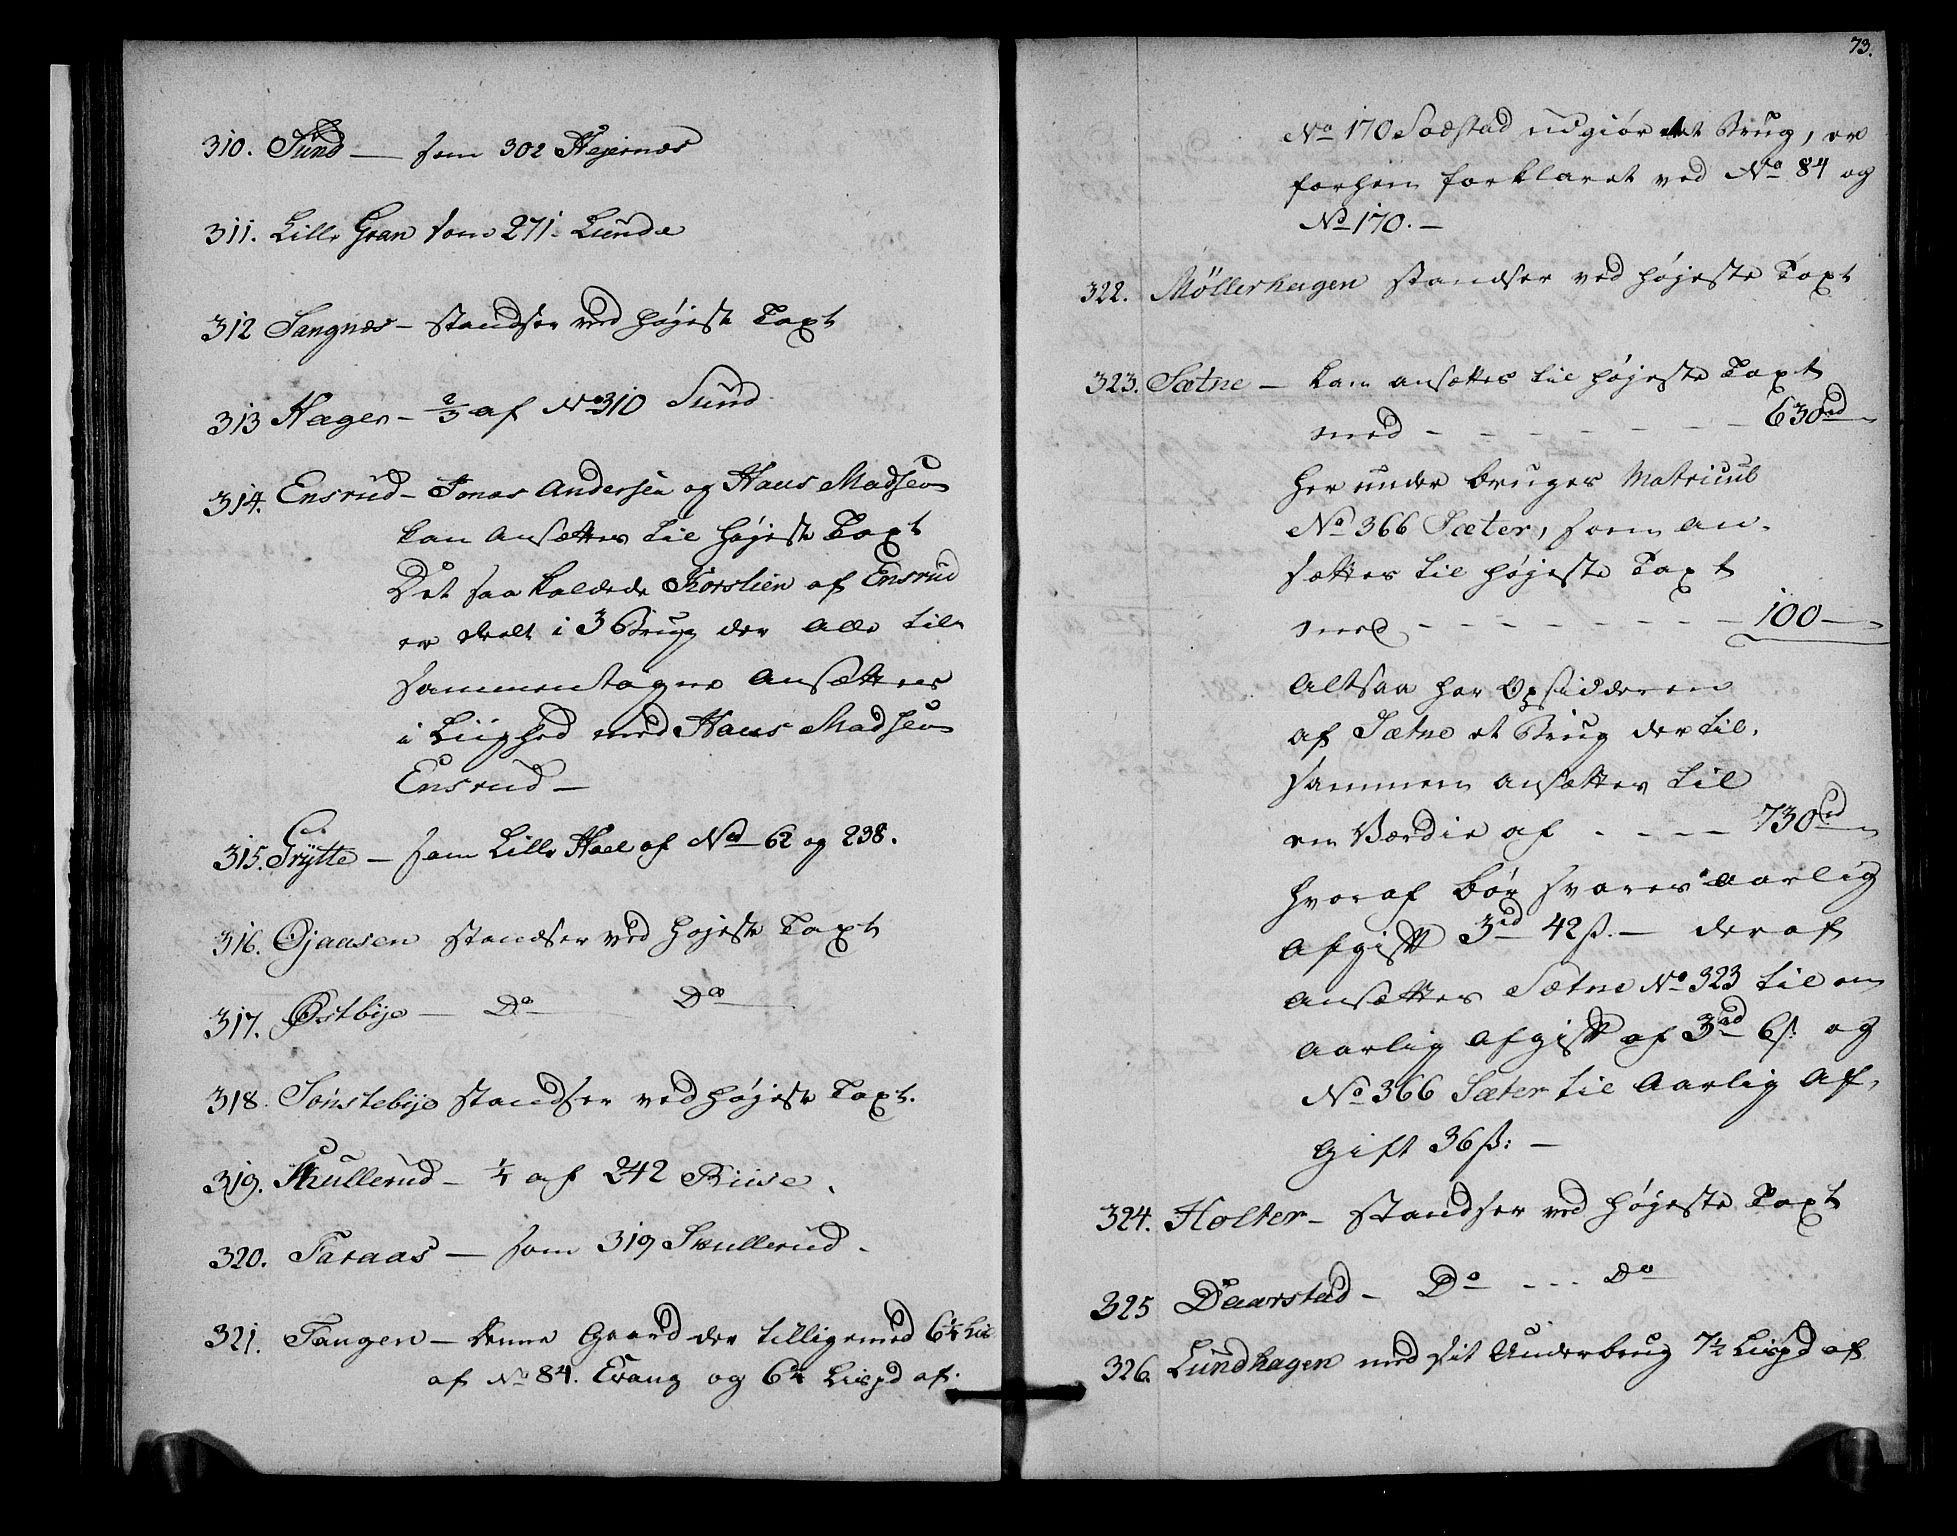 310. Sund — som 302 Hejernæs
311. Lille Gran som 271. Lunde
312 Sangnæs – standser ved højeste Taxt
313 Hagen – 2/3 af No 310 Sund
314. Ensrud – Jonas Andersen og Hans Madsen
kan ansættes til højeste Taxt
Det saa kaldede Korslien af Ensrud
er deelt i 3 Brug der alle til-
sammentagne ansættes
i Liighed med Hans Madsen
Ensrud –
315. Grytte – som Lille Hoel af No 62 og 238.
316. Øjaasen standser ved højeste Taxt
317. Østbye – Do Do
318. Sønstebye standser ved højeste Taxt.
319. Skullerud – 1/4 af 242 Riise.
320. Taraas – som 319 Skullerud.
321. Tangen – denne Gaard der tilligemed 6 1/4 Lis
af No 84. Evang og 6 1/4 Lispd af
73.
No 170 Soestad udgiør et Brug, er
forhen forklaret ved No 84 og
No 170. –
322. Møllerhagen standser ved højeste Taxt
323. Sætne – kan ansættes til højeste Taxt
med – – – – – – – 630 rd
herunder bruges Matricul
No 366 Sæter, som an-
sættes til højeste Taxt
med – – – – – – – 100 –
Altsaa har Opsidderen
af Sætne et Brug der til-
sammen ansættes til
en Værdie af – – – – 730 rd
hvoraf bør svares aarlig
Afgift 3 rd 42 ß. – deraf
ansættes Sætne No 323 til en
aarlig Afgift af 3 rd 6 ß og
No 366 Sæter til Aarlig Af-
gift 36 ß: –
324. Holter – standser ved højeste Taxt
325 Daarstad – Do – – – Do
326. Lundhagen med sit Underbrug 7 1/2 Lispd af